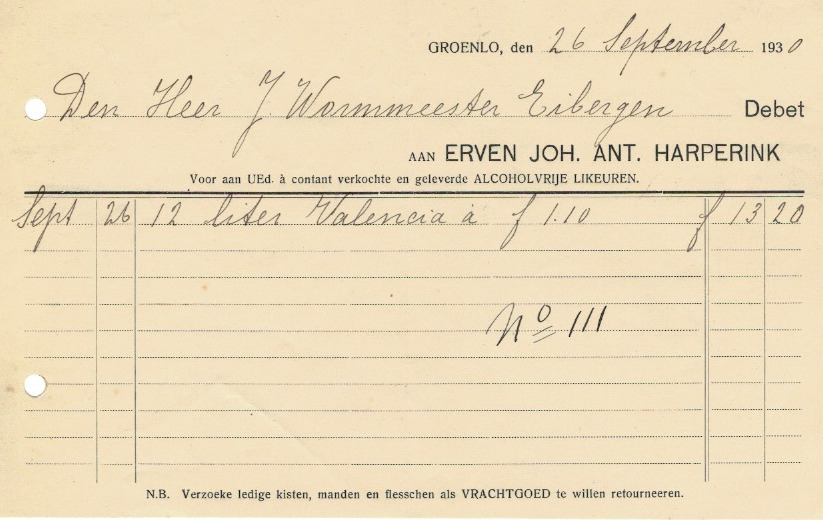 GROENLO, den 26 September 1930
Den Heer J. Wormmeester Eibergen Debet
AAN ERVEN JOH. ANT. HARPERINK
Voor aan UEd. à contant verkochte en geleverde ALCOHOLVRIJE LIKEUREN.
Sept 26 12 liter Valencia à f 1.10 f 13 20
No 111
N.B. Verzoeke ledige kisten, manden en flesschen als VRACHTGOED te willen retourneeren.